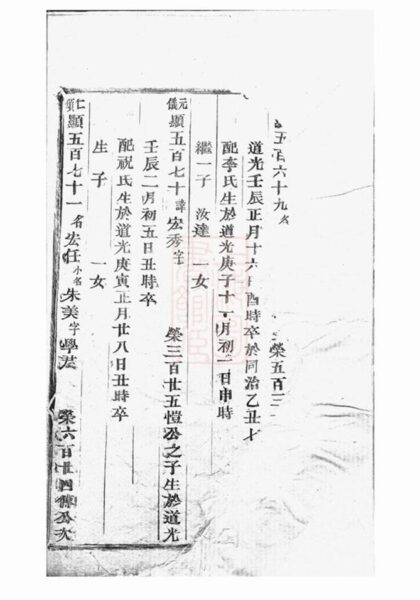 五百六十九名 榮五百三
道光壬辰正月十六日酉時卒於同治乙丑七
配李氏生於道光庚子十一月初一日申時
繼一子 汝達 一女
元儀 顯五百七十 諱宏秀字 榮三百廿五愷公之子生於道光
壬辰二月初五日丑時卒
配祝氏生於道光庚寅正月廿八日丑時卒
生子 一女
顯五百七十一名宏任小名朱美字學 榮六百 公次